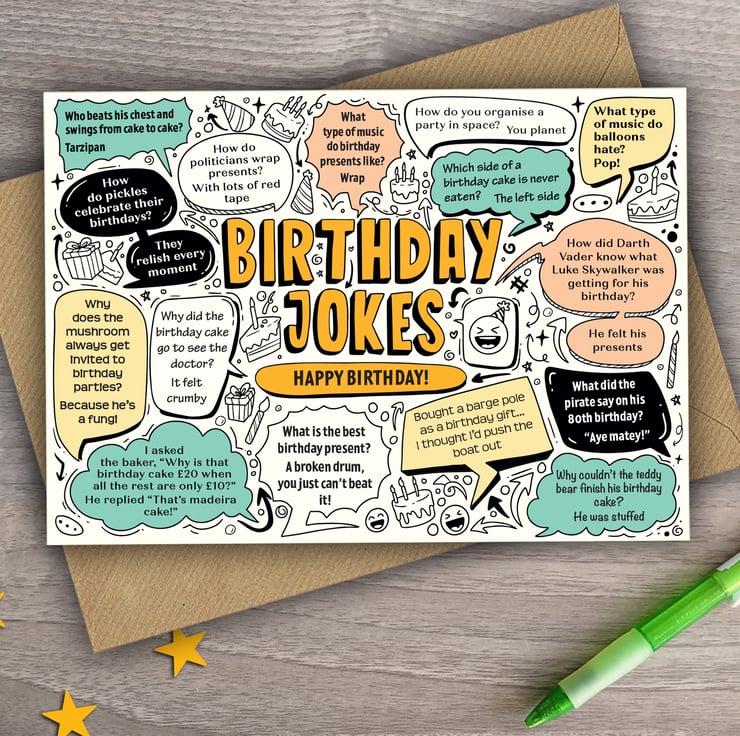 Who beats his chest and
swings from cake to cake?
Tarzipan
How do
politicians wrap
presents?
With lots of red
tape
What
type of music
do birthday
presents like?
Wrap
How do you organise a
party in space? You planet
What type
of music do
balloons
hate?
Pop!
Which side of a
birthday cake is never
eaten? The left side
How
do pickles
celebrate their
birthdays?
They
relish every
moment
BIRTHDAY
JOKES
HAPPY BIRTHDAY!
How did Darth
Vader know what
Luke Skywalker was
getting for his
birthday?
He felt his
presents
Why
does the
mushroom
always get
invited to
birthday
parties?
Because he's
a fungi
Why did the
birthday cake
go to see the
doctor?
It felt
crumby
What is the best
birthday present?
A broken drum,
you just can't beat
it!
Bought a barge pole
as a birthday gift...
I thought I'd push the
boat out
What did the
pirate say on his
80th birthday?
"Aye matey!"
I asked
the baker, "Why is that
birthday cake £20 when
all the rest are only £10?"
He replied "That's madeira
cake!"
Why couldn't the teddy
bear finish his birthday
cake?
He was stuffed